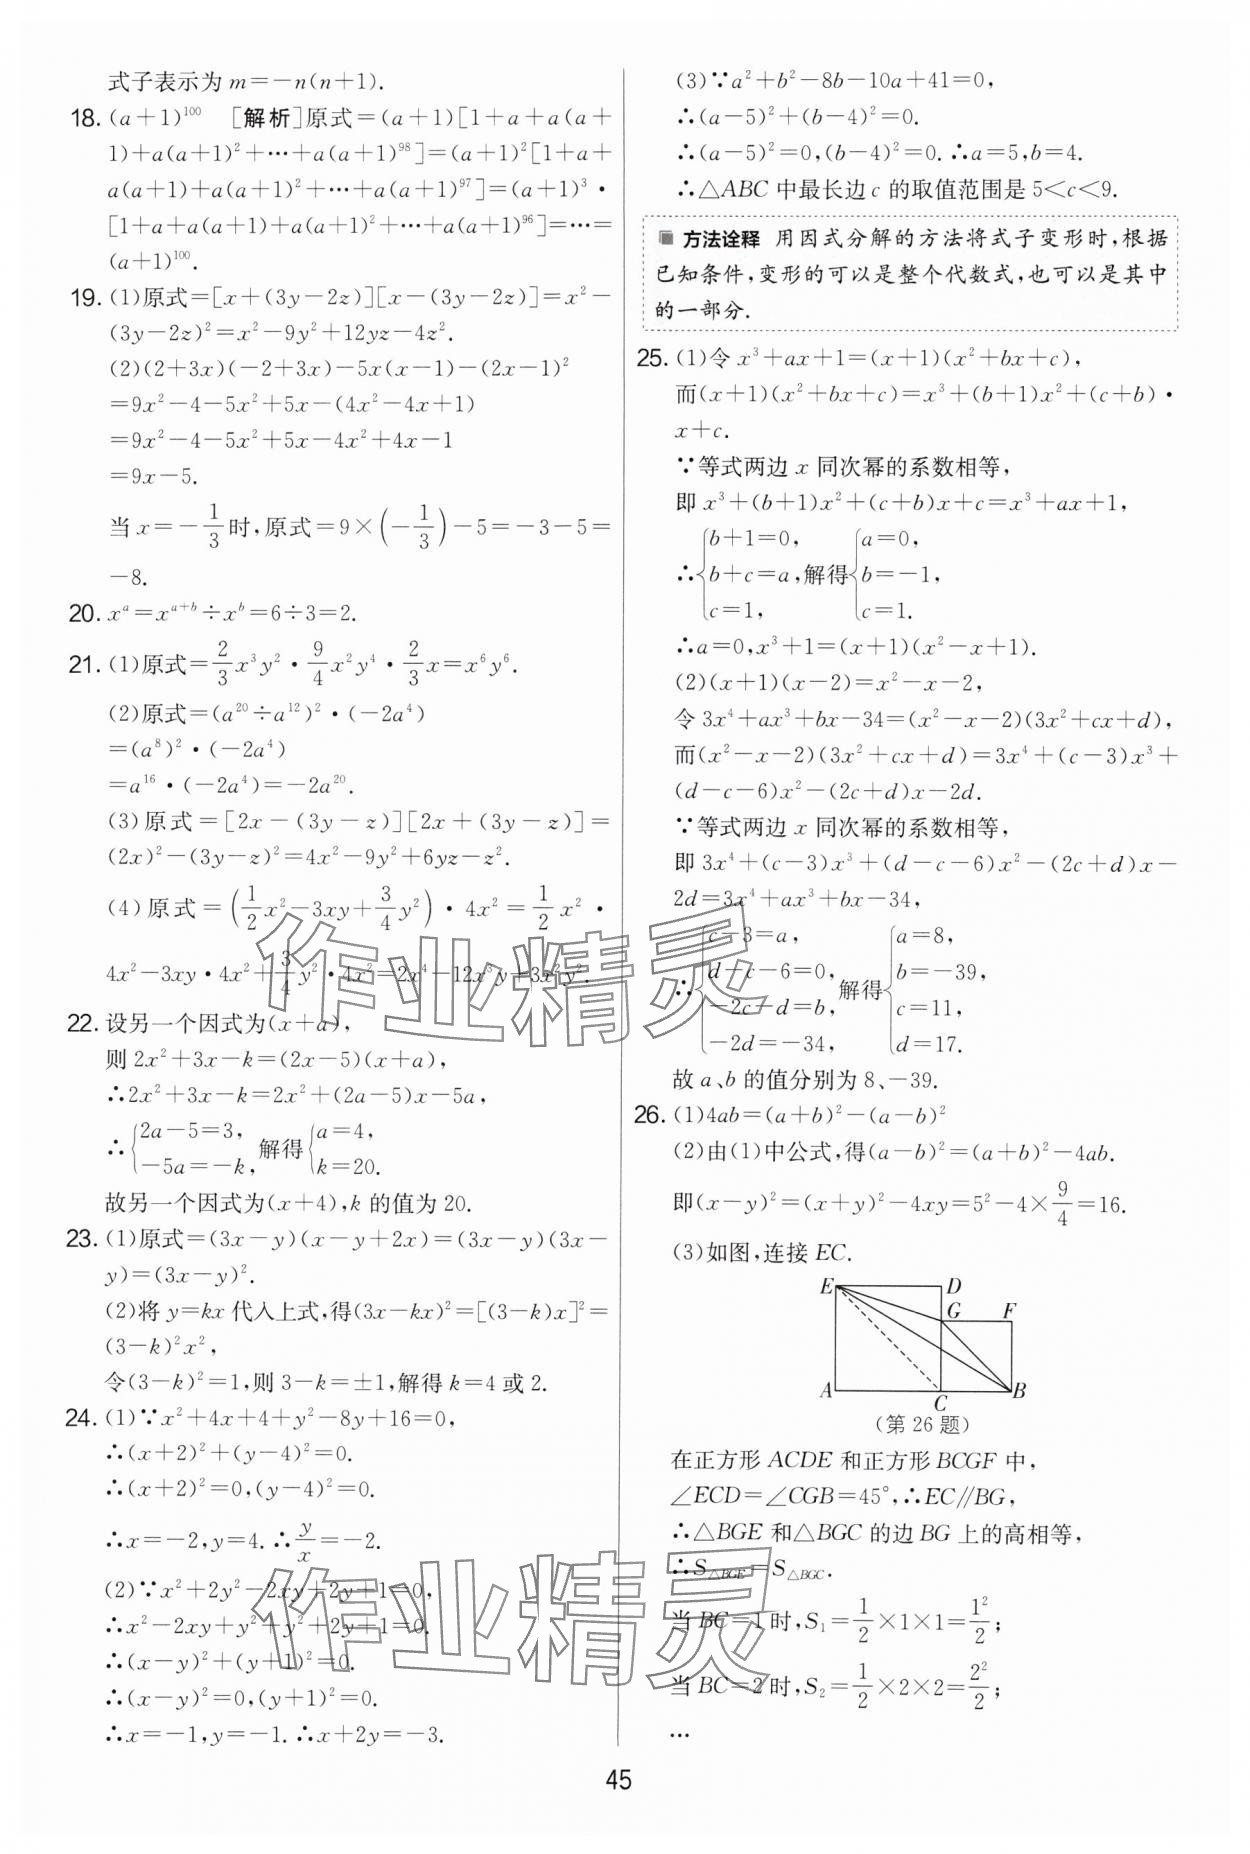 式子表示为 m=-n(n+1).
18. (a+1)¹⁰⁰ [解析]原式=(a+1)[1+a+a(a+
1)+a(a+1)²+…+a(a+1)⁹⁸]=(a+1)²[1+a+
a(a+1)+a(a+1)²+…+a(a+1)⁹⁷]=(a+1)³·
[1+a+a(a+1)+a(a+1)²+…+a(a+1)⁹⁶]=…=
(a+1)¹⁰⁰.
19. (1)原式=[x+(3y-2z)][x-(3y-2z)]=x²-
(3y-2z)²=x²-9y²+12yz-4z².
(2)(2+3x)(-2+3x)-5x(x-1)-(2x-1)²
=9x²-4-5x²+5x-(4x²-4x+1)
=9x²-4-5x²+5x-4x²+4x-1
=9x-5.
当 x=-1/3 时,原式=9×(-1/3)-5=-3-5=
-8.
20. xᵃ=xᵃ⁺ᵇ÷xᵇ=6÷3=2.
21. (1)原式=2/3x³y²·9/4x²y⁴·2/3x=x⁶y⁶.
(2)原式=(a²⁰÷a¹²)²·(-2a⁴)
=(a⁸)²·(-2a⁴)
=a¹⁶·(-2a⁴)=-2a²⁰.
(3)原式=[2x-(3y-z)][2x+(3y-z)]=
(2x)²-(3y-z)²=4x²-9y²+6yz-z².
(4)原式=(1/2x²-3xy+3/4y²)·4x²=1/2x²·
4x²-3xy·4x²+3/4y²·4x²=2x⁴-12x³y+3x²y².
22. 设另一个因式为(x+a),
则 2x²+3x-k=(2x-5)(x+a),
∴2x²+3x-k=2x²+(2a-5)x-5a,
∴{2a-5=3, -5a=-k, 解得{a=4, k=20.
故另一个因式为(x+4),k 的值为 20.
23. (1)原式=(3x-y)(x-y+2x)=(3x-y)(3x-
y)=(3x-y)².
(2)将 y=kx 代入上式,得(3x-kx)²=[(3-k)x]²=
(3-k)²x²,
令(3-k)²=1,则 3-k=±1,解得 k=4 或 2.
24. (1)∵x²+4x+4+y²-8y+16=0,
∴(x+2)²+(y-4)²=0.
∴(x+2)²=0,(y-4)²=0.
∴x=-2,y=4.∴y/x=-2.
(2)∵x²+2y²-2xy+2y+1=0,
∴x²-2xy+y²+y²+2y+1=0.
∴(x-y)²+(y+1)²=0.
∴(x-y)²=0,(y+1)²=0.
∴x=-1,y=-1.∴x+2y=-3.
(3)∵a²+b²-8b-10a+41=0,
∴(a-5)²+(b-4)²=0.
∴(a-5)²=0,(b-4)²=0.∴a=5,b=4.
∴△ABC 中最长边 c 的取值范围是 5<c<9.
方法诠释 用因式分解的方法将式子变形时,根据
已知条件,变形的可以是整个代数式,也可以是其中
的一部分.
25. (1)令 x³+ax+1=(x+1)(x²+bx+c),
而(x+1)(x²+bx+c)=x³+(b+1)x²+(c+b)·
x+c.
∵等式两边 x 同次幂的系数相等,
即 x³+(b+1)x²+(c+b)x+c=x³+ax+1,
∴{b+1=0, b+c=a, c=1, 解得{a=0, b=-1, c=1.
∴a=0,x³+1=(x+1)(x²-x+1).
(2)(x+1)(x-2)=x²-x-2,
令 3x⁴+ax³+bx-34=(x²-x-2)(3x²+cx+d),
而(x²-x-2)(3x²+cx+d)=3x⁴+(c-3)x³+
(d-c-6)x²-(2c+d)x-2d.
∵等式两边 x 同次幂的系数相等,
即 3x⁴+(c-3)x³+(d-c-6)x²-(2c+d)x-
2d=3x⁴+ax³+bx-34,
∴{c-3=a, d-c-6=0, -2c-d=b, -2d=-34, 解得{a=8, b=-39, c=11, d=17.
故 a、b 的值分别为 8、-39.
26. (1)4ab=(a+b)²-(a-b)²
(2)由(1)中公式,得(a-b)²=(a+b)²-4ab.
即(x-y)²=(x+y)²-4xy=5²-4×9/4=16.
(3)如图,连接 EC.
E D
G F
A C B
(第 26 题)
在正方形 ACDE 和正方形 BCGF 中,
∠ECD=∠CGB=45°,∴EC∥BG,
∴△BGE 和△BGC 的边 BG 上的高相等,
∴S△BGE=S△BGC.
当 BC=1 时,S₁=1/2×1×1=1²/2;
当 BC=2 时,S₂=1/2×2×2=2²/2;
…
45
作业精灵
作业精灵